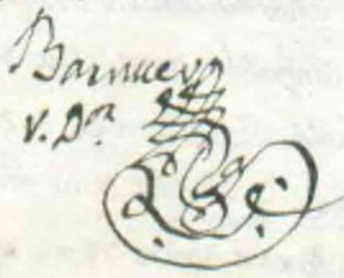 Barnuevo
v. Dor